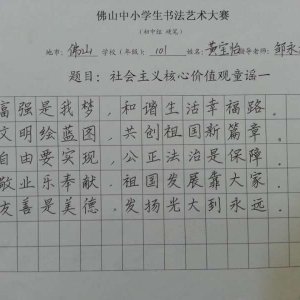 佛山中小学生书法艺术大赛
（初中组 硬笔）
地市：佛山 学校（年级）：101 姓名：黄宝怡 指导老师：邹永
题目：社会主义核心价值观童谣一
富强是我梦，和谐生活幸福路。
文明绘蓝图，共创祖国新篇章。
自由要实现，公正法治是保障。
敬业乐奉献，祖国发展靠大家。
友善是美德，发扬光大到永远。